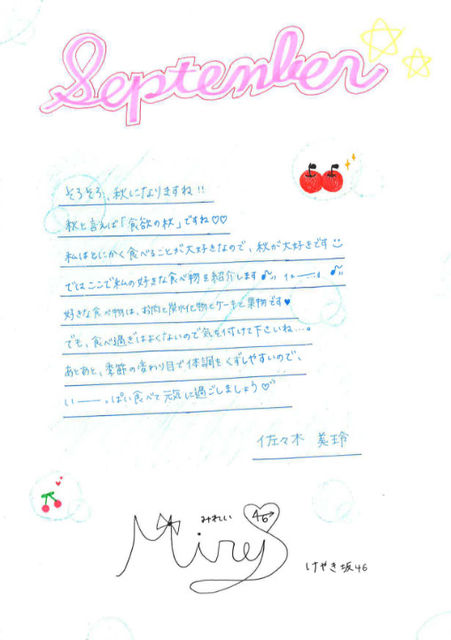 September
そろそろ、秋になりますね!!
秋と言えば「食欲の秋」ですね♡♡
私はとにかく食べることが大好きなので、秋が大好きです
ではここで私の好きな食べ物を紹介します♪ いぇーーい♪
好きな食べ物は、お肉と炭水化物とケーキと果物です♥
でも、食べ過ぎはよくないので気を付けて下さいね…。
あとあと、季節の変わり目で体調もくずしやすいので、
いーーっぱい食べて元気に過ごしましょう♡
佐々木 美玲
みれい 46
Mirei
けやき坂46